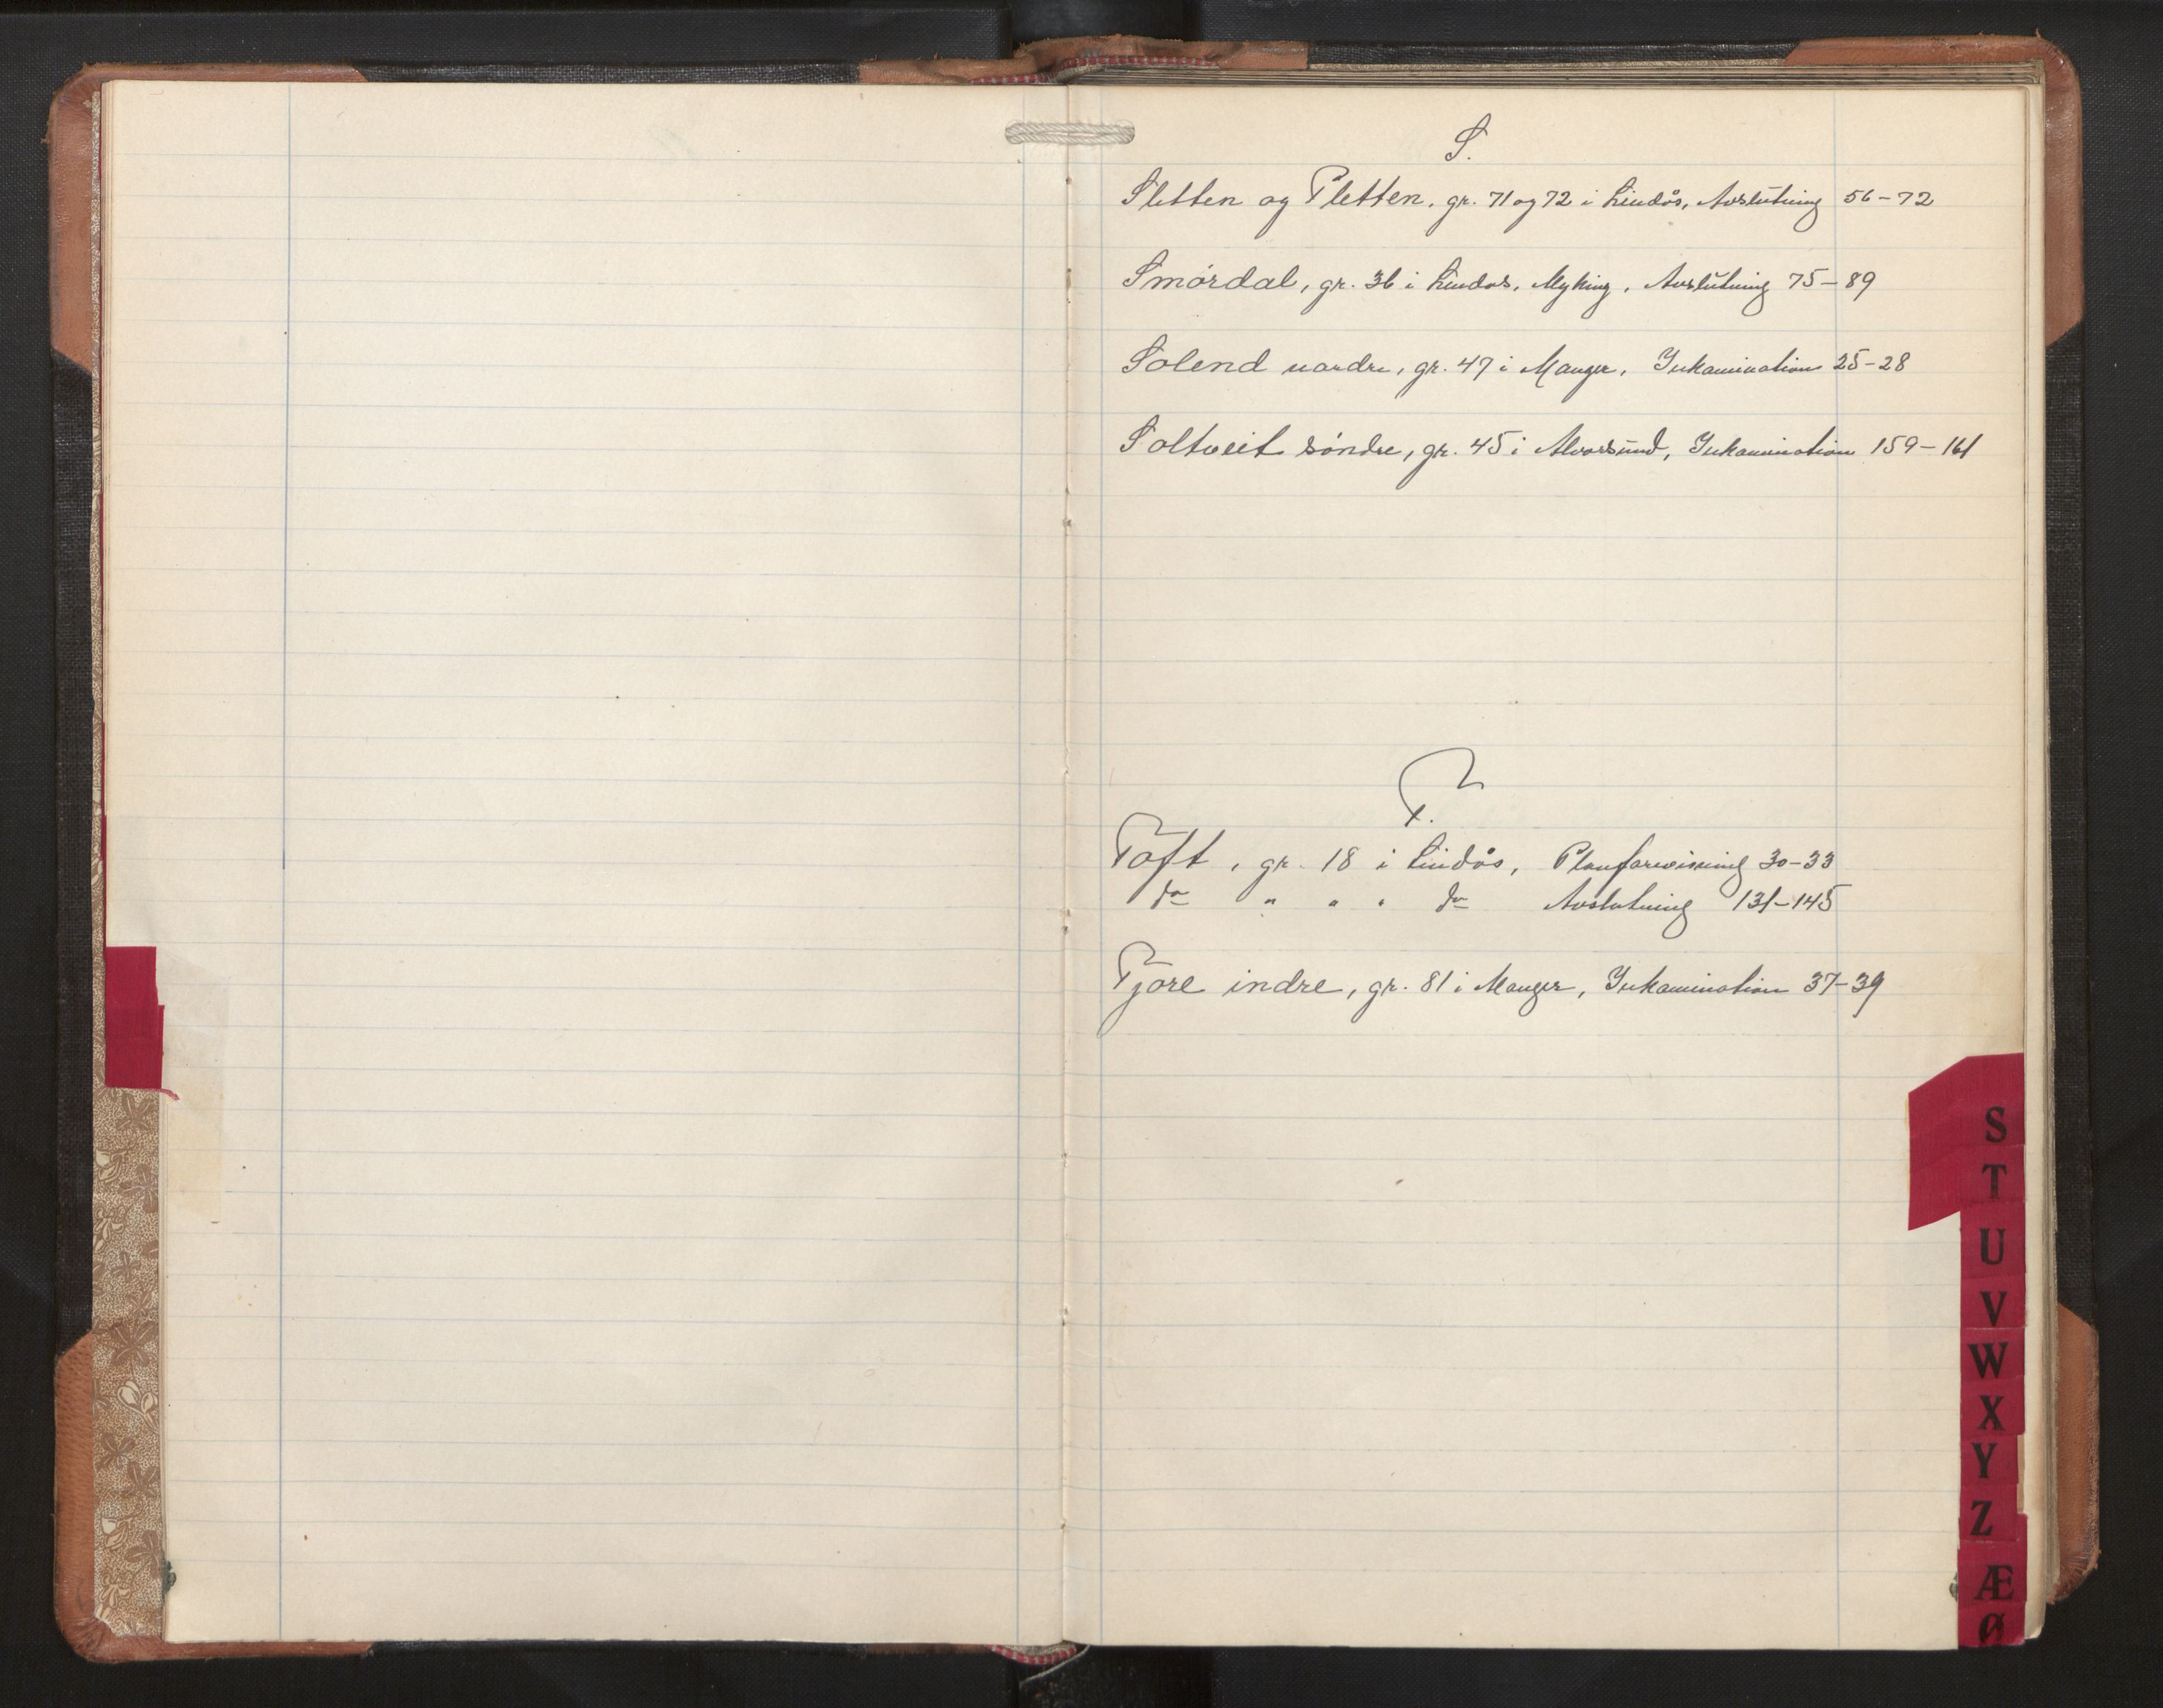 S.
Sletten og Pletten, gr. 71 og 72 i Lindås, Avslutning 56-72
Smørdal, gr. 36 i Lindås, Myking, Avslutning 75-89
Solend nordre, gr. 47 i Manger, Inkamination 25-28
Soltveit søndre, gr. 45 i Alversund, Inkamination 159-161
T.
Toft, gr. 18 i Lindås, Planforevisning 30-33
do " " " do Avslutning 131-145
Tjore indre, gr. 81 i Manger, Inkamination 37-39
S
T
U
V
W
X
Y
Z
Æ
Ø